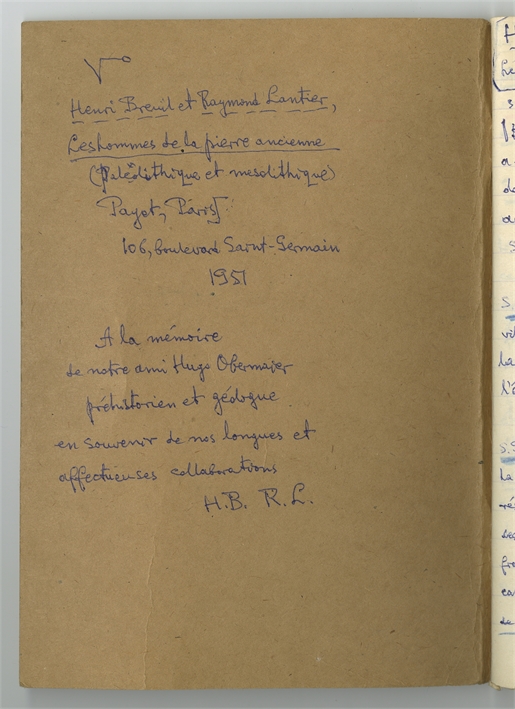 V°
Henri Breuil et Raymond Lantier,
Les hommes de la pierre ancienne
(Paléolithique et mesolithique)
Payot, Paris
106, boulevard Saint-Germain
1951
A la mémoire
de notre ami Hugo Obermaier
préhistorien et géologue
en souvenir de nos longues et
affectueuses collaborations
H.B. R.L.